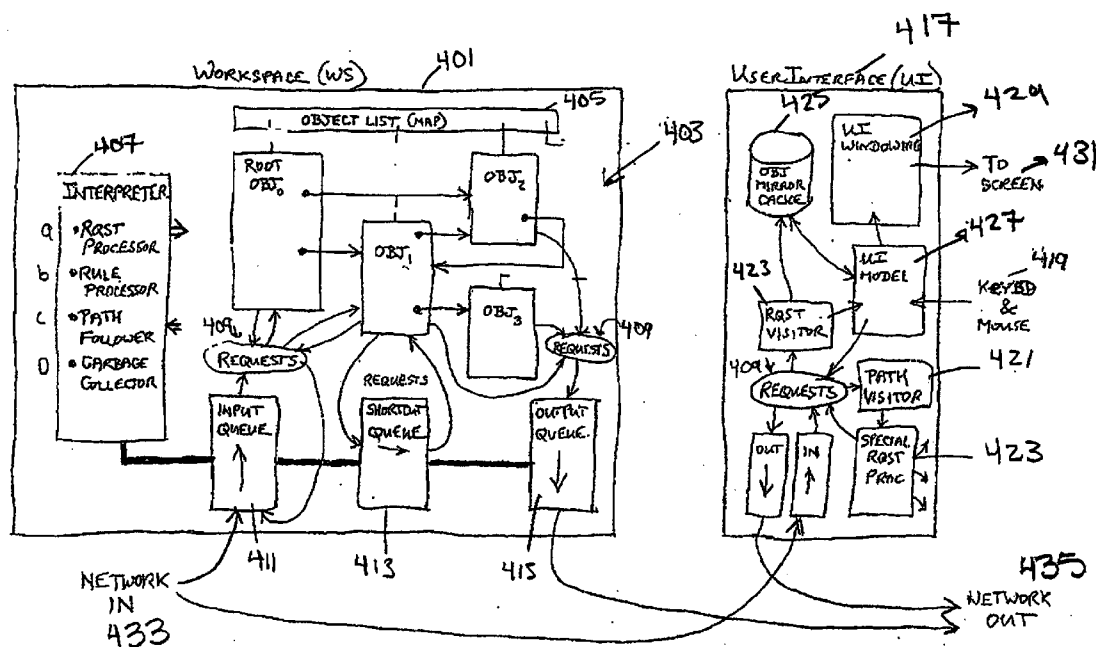 WORKSPACE (WS)
401
405
OBJECT LIST (MAP)
403
407
INTERPRETER
a • RQST PROCESSOR
b • RULE PROCESSOR
c • PATH FOLLOWER
D • GARBAGE COLLECTOR
ROOT
OBJ0
OBJ1
OBJ2
OBJ3
409
REQUESTS
REQUESTS
409
REQUESTS
INPUT
QUEUE
SHORTCUT
QUEUE
OUTPUT
QUEUE
411
413
415
NETWORK
IN
433
417
USER INTERFACE (UI)
425
OBJ
MIRROR
CACHE
UI
WINDOWING
429
TO
SCREEN
431
427
UI
MODEL
419
KEYBD
&
MOUSE
423
RQST
VISITOR
409
REQUESTS
PATH
VISITOR
421
OUT
IN
SPECIAL
RQST
PROC
423
435
NETWORK
OUT